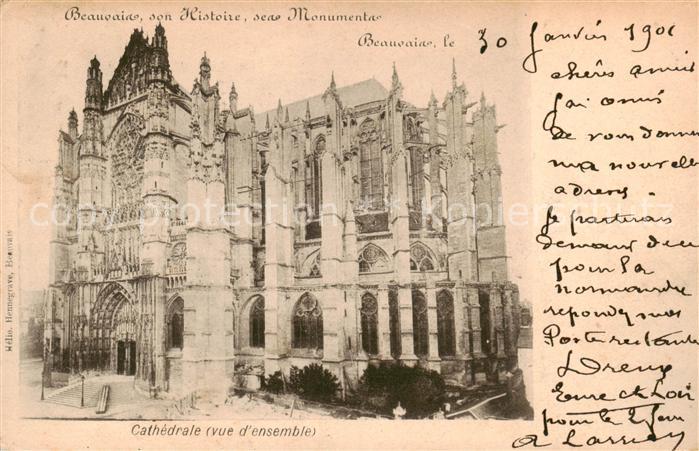 Beauvais, son Histoire, ses Monuments
Beauvais, le 30 Janvier 1901
chères amies
j'ai omis
de vous donner
ma nouvelle
adress
je partirais
demain
pour la
normandie
repondez moi
Poste restante
Dreux
Eure et Loir
pour le 2
Hélio. Hennegrave, Beauvais
Cathédrale (vue d'ensemble)
copyright protection Kopierschutz